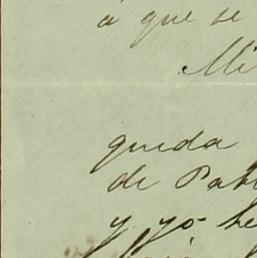 á que se
Mi
queda
de Pab
y yo he